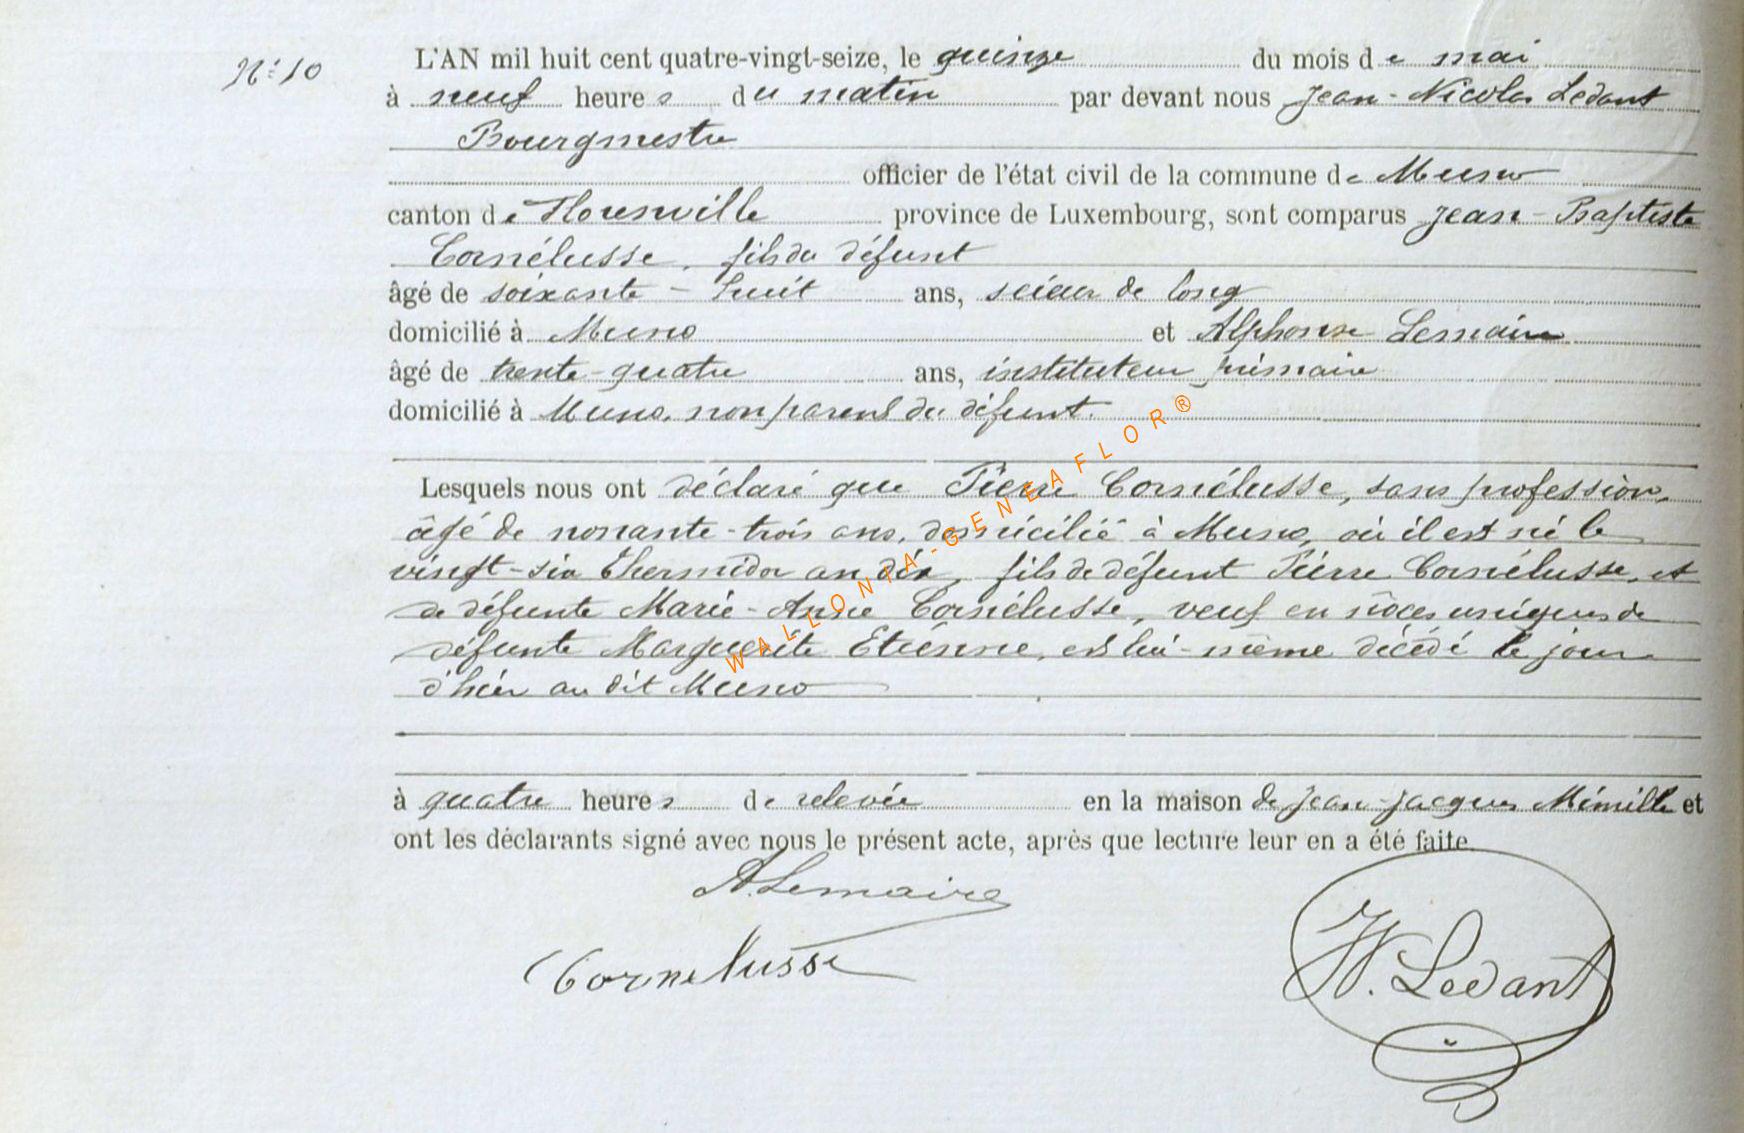 N° 10
L'AN mil huit cent quatre-vingt-seize, le quinze du mois de mai
à neuf heures du matin par devant nous Jean-Nicolas Ledant
Bourgmestre
officier de l'état civil de la commune de Muno
canton de Florenville province de Luxembourg, sont comparus Jean-Baptiste
Cornélusse, fils du défunt
âgé de soixante-huit ans, scieur de long
domicilié à Muno et Alphonse Lemaire
âgé de trente-quatre ans, instituteur primaire
domicilié à Muno, non parent du défunt.
Lesquels nous ont déclaré que Pierre Cornélusse, sans profession,
âgé de nonante-trois ans, domicilié à Muno, où il est né le
vingt-six Thermidor an dix, fils de défunt Pierre Cornélusse, et
de défunte Marie-Anne Cornélusse, veuf en noces uniques de
défunte Marguerite Etienne, est lui-même décédé le jour
d'hier au dit Muno
à quatre heures de relevée en la maison de Jean-Jacques Mémille et
ont les déclarants signé avec nous le présent acte, après que lecture leur en a été faite.
A. Lemaire
Cornelusse
N. Ledant
WALLONIA-GENEAFLOR®